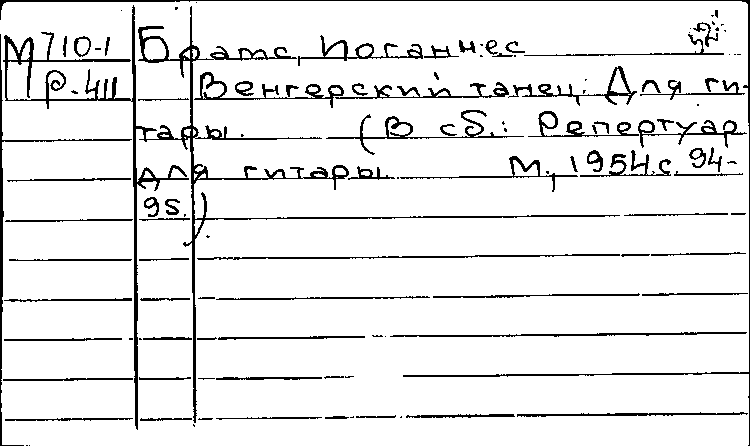 М710-1 Брамс, Иоганнес
Р-411 Венгерский танец: Для ги-
тары. (В сб.: Репертуар
для гитары. М., 1954. с. 94-
95.)